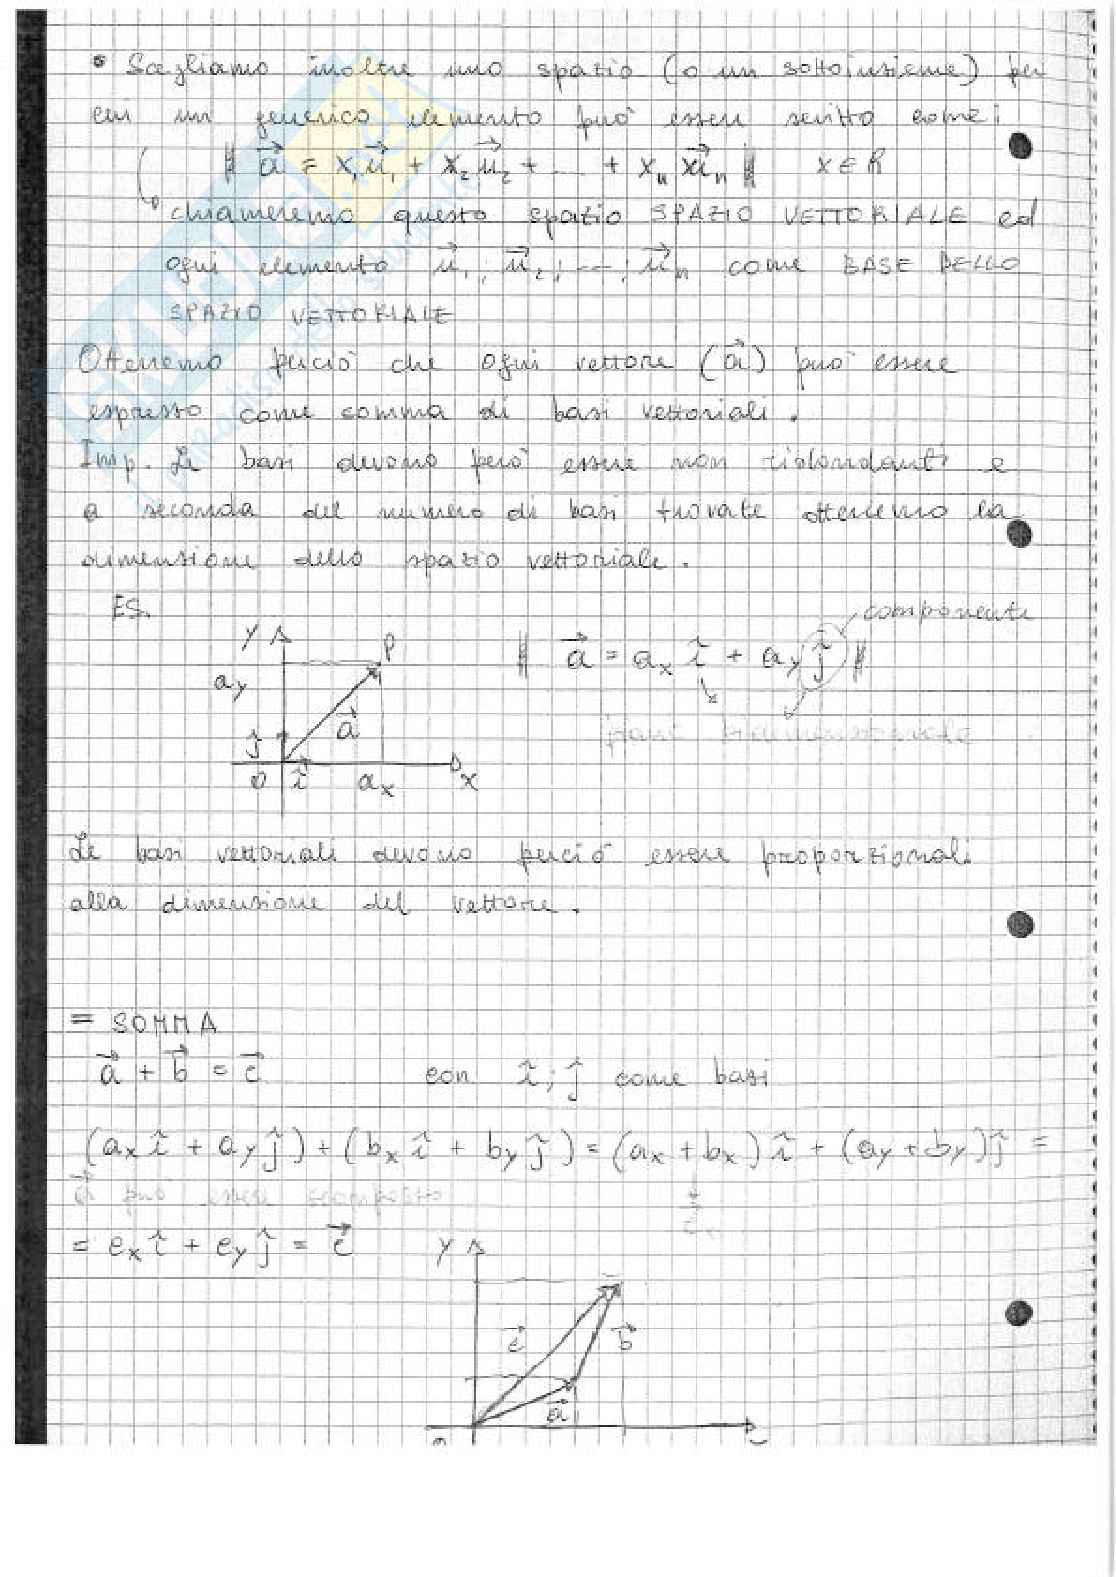 • Scegliamo inoltre uno spazio (o un sottoinsieme) per
cui un generico elemento può essere scritto come:
‖ a⃗ = x₁u⃗₁ + x₂u⃗₂ + ... + xₙ xu⃗ₙ ‖ x ∈ R
chiameremo questo spazio SPAZIO VETTORIALE ed
ogni elemento u⃗₁; u⃗₂; ---; u⃗ₙ come BASE DELLO
SPAZIO VETTORIALE
Otterremo perciò che ogni vettore (a⃗) può essere
espresso come somma di basi vettoriali.
Imp. Le basi devono però essere non ridondanti e
a seconda del numero di basi trovate otterremo la
dimensione dello spazio vettoriale.
ES.
componenti
y P
‖ a⃗ = aₓ î + a_y ĵ ‖
a_y
a⃗
bidimensionale
ĵ
O î aₓ x
Le basi vettoriali devono perciò essere proporzionali
alla dimensione del vettore.
= SOMMA
a⃗ + b⃗ = c⃗ con î; ĵ come basi
(aₓ î + a_y ĵ) + (bₓ î + b_y ĵ) = (aₓ + bₓ) î + (a_y + b_y) ĵ =
a⃗ può essere scomposto
= cₓ î + c_y ĵ = c⃗ y
c⃗ b⃗
a⃗